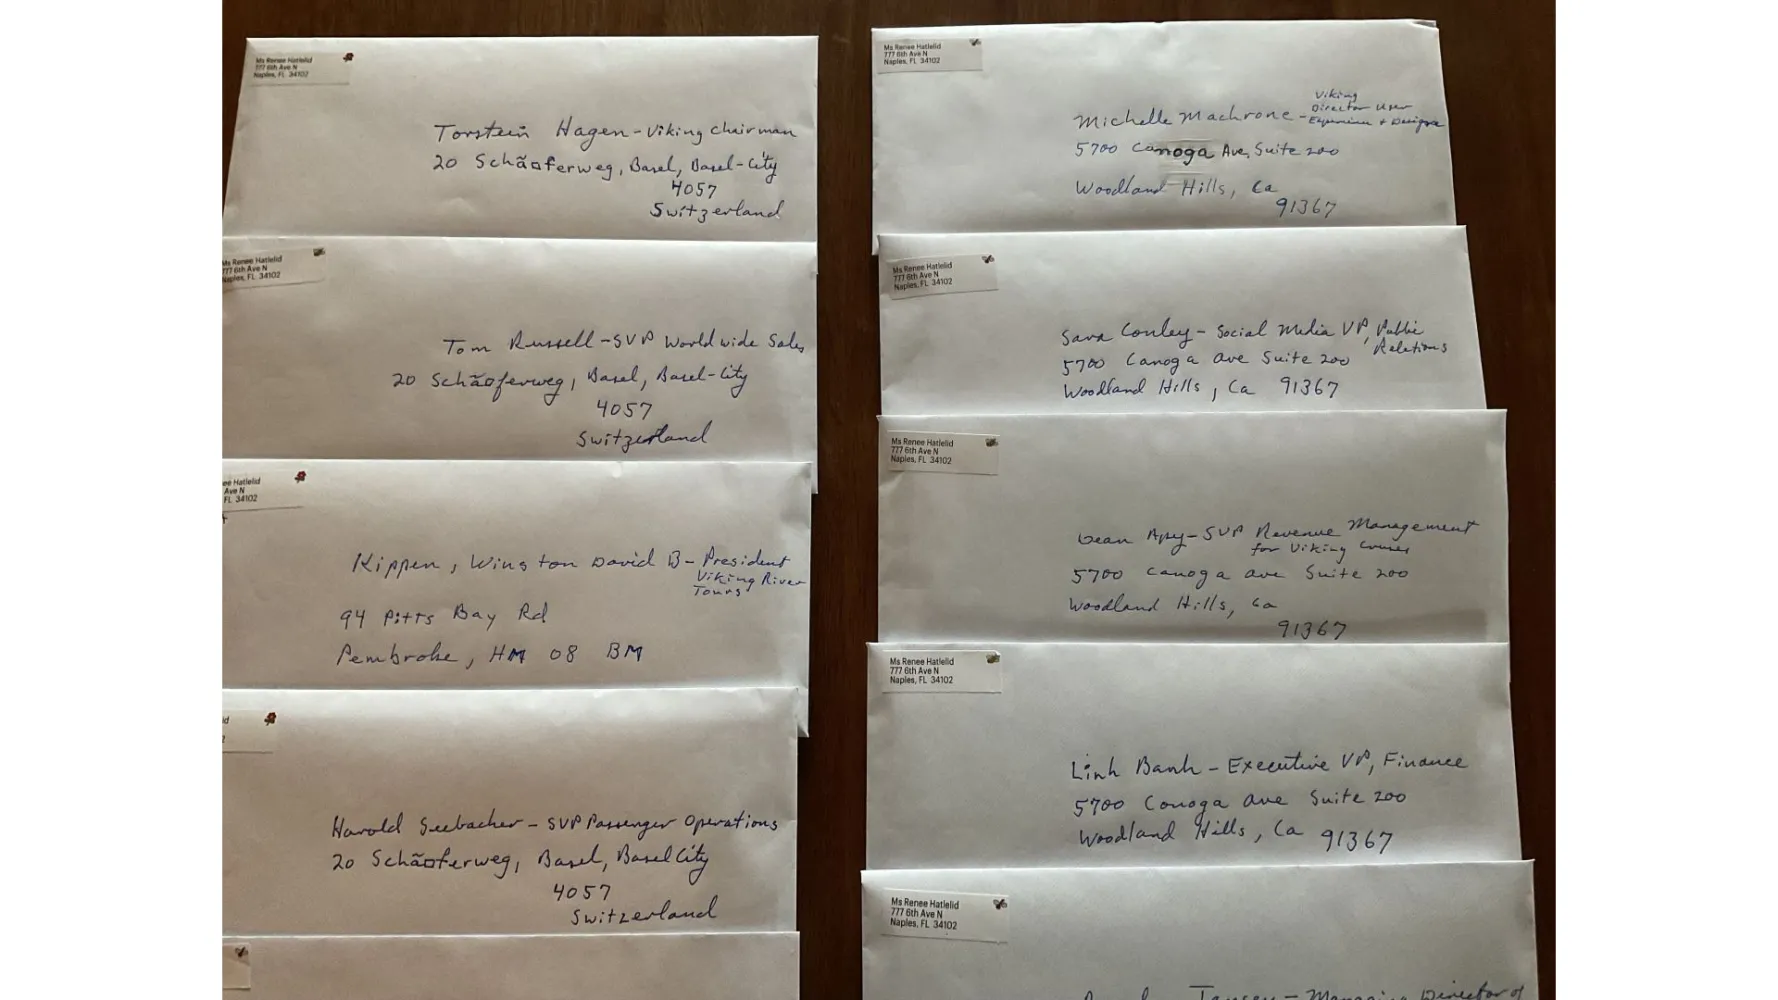 Ms Renee Hatlelid
777 6th Ave N
Naples, FL 34102
Torstein Hagen - Viking Chairman
20 Schãoferweg, Basel, Basel-City
4057
Switzerland
Ms Renee Hatlelid
777 6th Ave N
Naples, FL 34102
Tom Russell - SVP World wide Sales
20 Schãoferweg, Basel, Basel-City
4057
Switzerland
ee Hatlelid
Ave N
FL 34102
Kippen, Winston David B - President
Viking River
Tours
94 Pitts Bay Rd
Pembroke, HM 08 BM
Harold Seebacher - SVP Passenger Operations
20 Schãoferweg, Basel, Basel City
4057
Switzerland
Ms Renee Hatlelid
777 6th Ave N
Naples, FL 34102
Viking
Director User
Michelle Machrone - Experience + Designer
5700 Canoga Ave, Suite 200
Woodland Hills, Ca
91367
Ms Renee Hatlelid
777 6th Ave N
Naples, FL 34102
Sara Conley - Social Media VP, Public
Relations
5700 Canoga Ave Suite 200
Woodland Hills, Ca 91367
Ms Renee Hatlelid
777 6th Ave N
Naples, FL 34102
Dean Apy - SVP Revenue Management
for Viking Cruises
5700 Canoga Ave Suite 200
Woodland Hills, Ca
91367
Ms Renee Hatlelid
777 6th Ave N
Naples, FL 34102
Linh Banh - Executive VP, Finance
5700 Canoga Ave Suite 200
Woodland Hills, Ca 91367
Ms Renee Hatlelid
777 6th Ave N
Naples, FL 34102
Jansen - Managing Director of